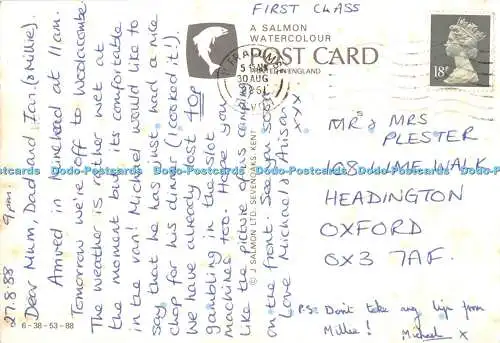 FIRST CLASS
A SALMON
WATERCOLOUR
POST CARD
PRINTED IN ENGLAND
30 AUG
18P
27.8.88 9am
Dear Mum, Dad and Ian. (& Millie).
Arrived in Minehead at 11am.
Tomorrow we're off to Woolacombe.
The weather is rather wet at
the moment but its comfortable
in the van! Michael would like to
say that he has just had a nice
chop for his dinner (I cooked it!).
We have already lost 70p
gambling in the slot
machines too. Hope you
like the picture of us camping
on the front. See you soon.
Love Michael & Alison xxx
© J SALMON LTD. SEVENOAKS. KENT
MR & MRS
PLESTER
108 LIME WALK
HEADINGTON
OXFORD
OX3 7AF.
P.S. Don't take any lip from
Millee! Michael x
6-38-53-88
Dodo-Postcards Dodo-Postcards Dodo-Postcards Dodo-Postcards Dodo-Postcards